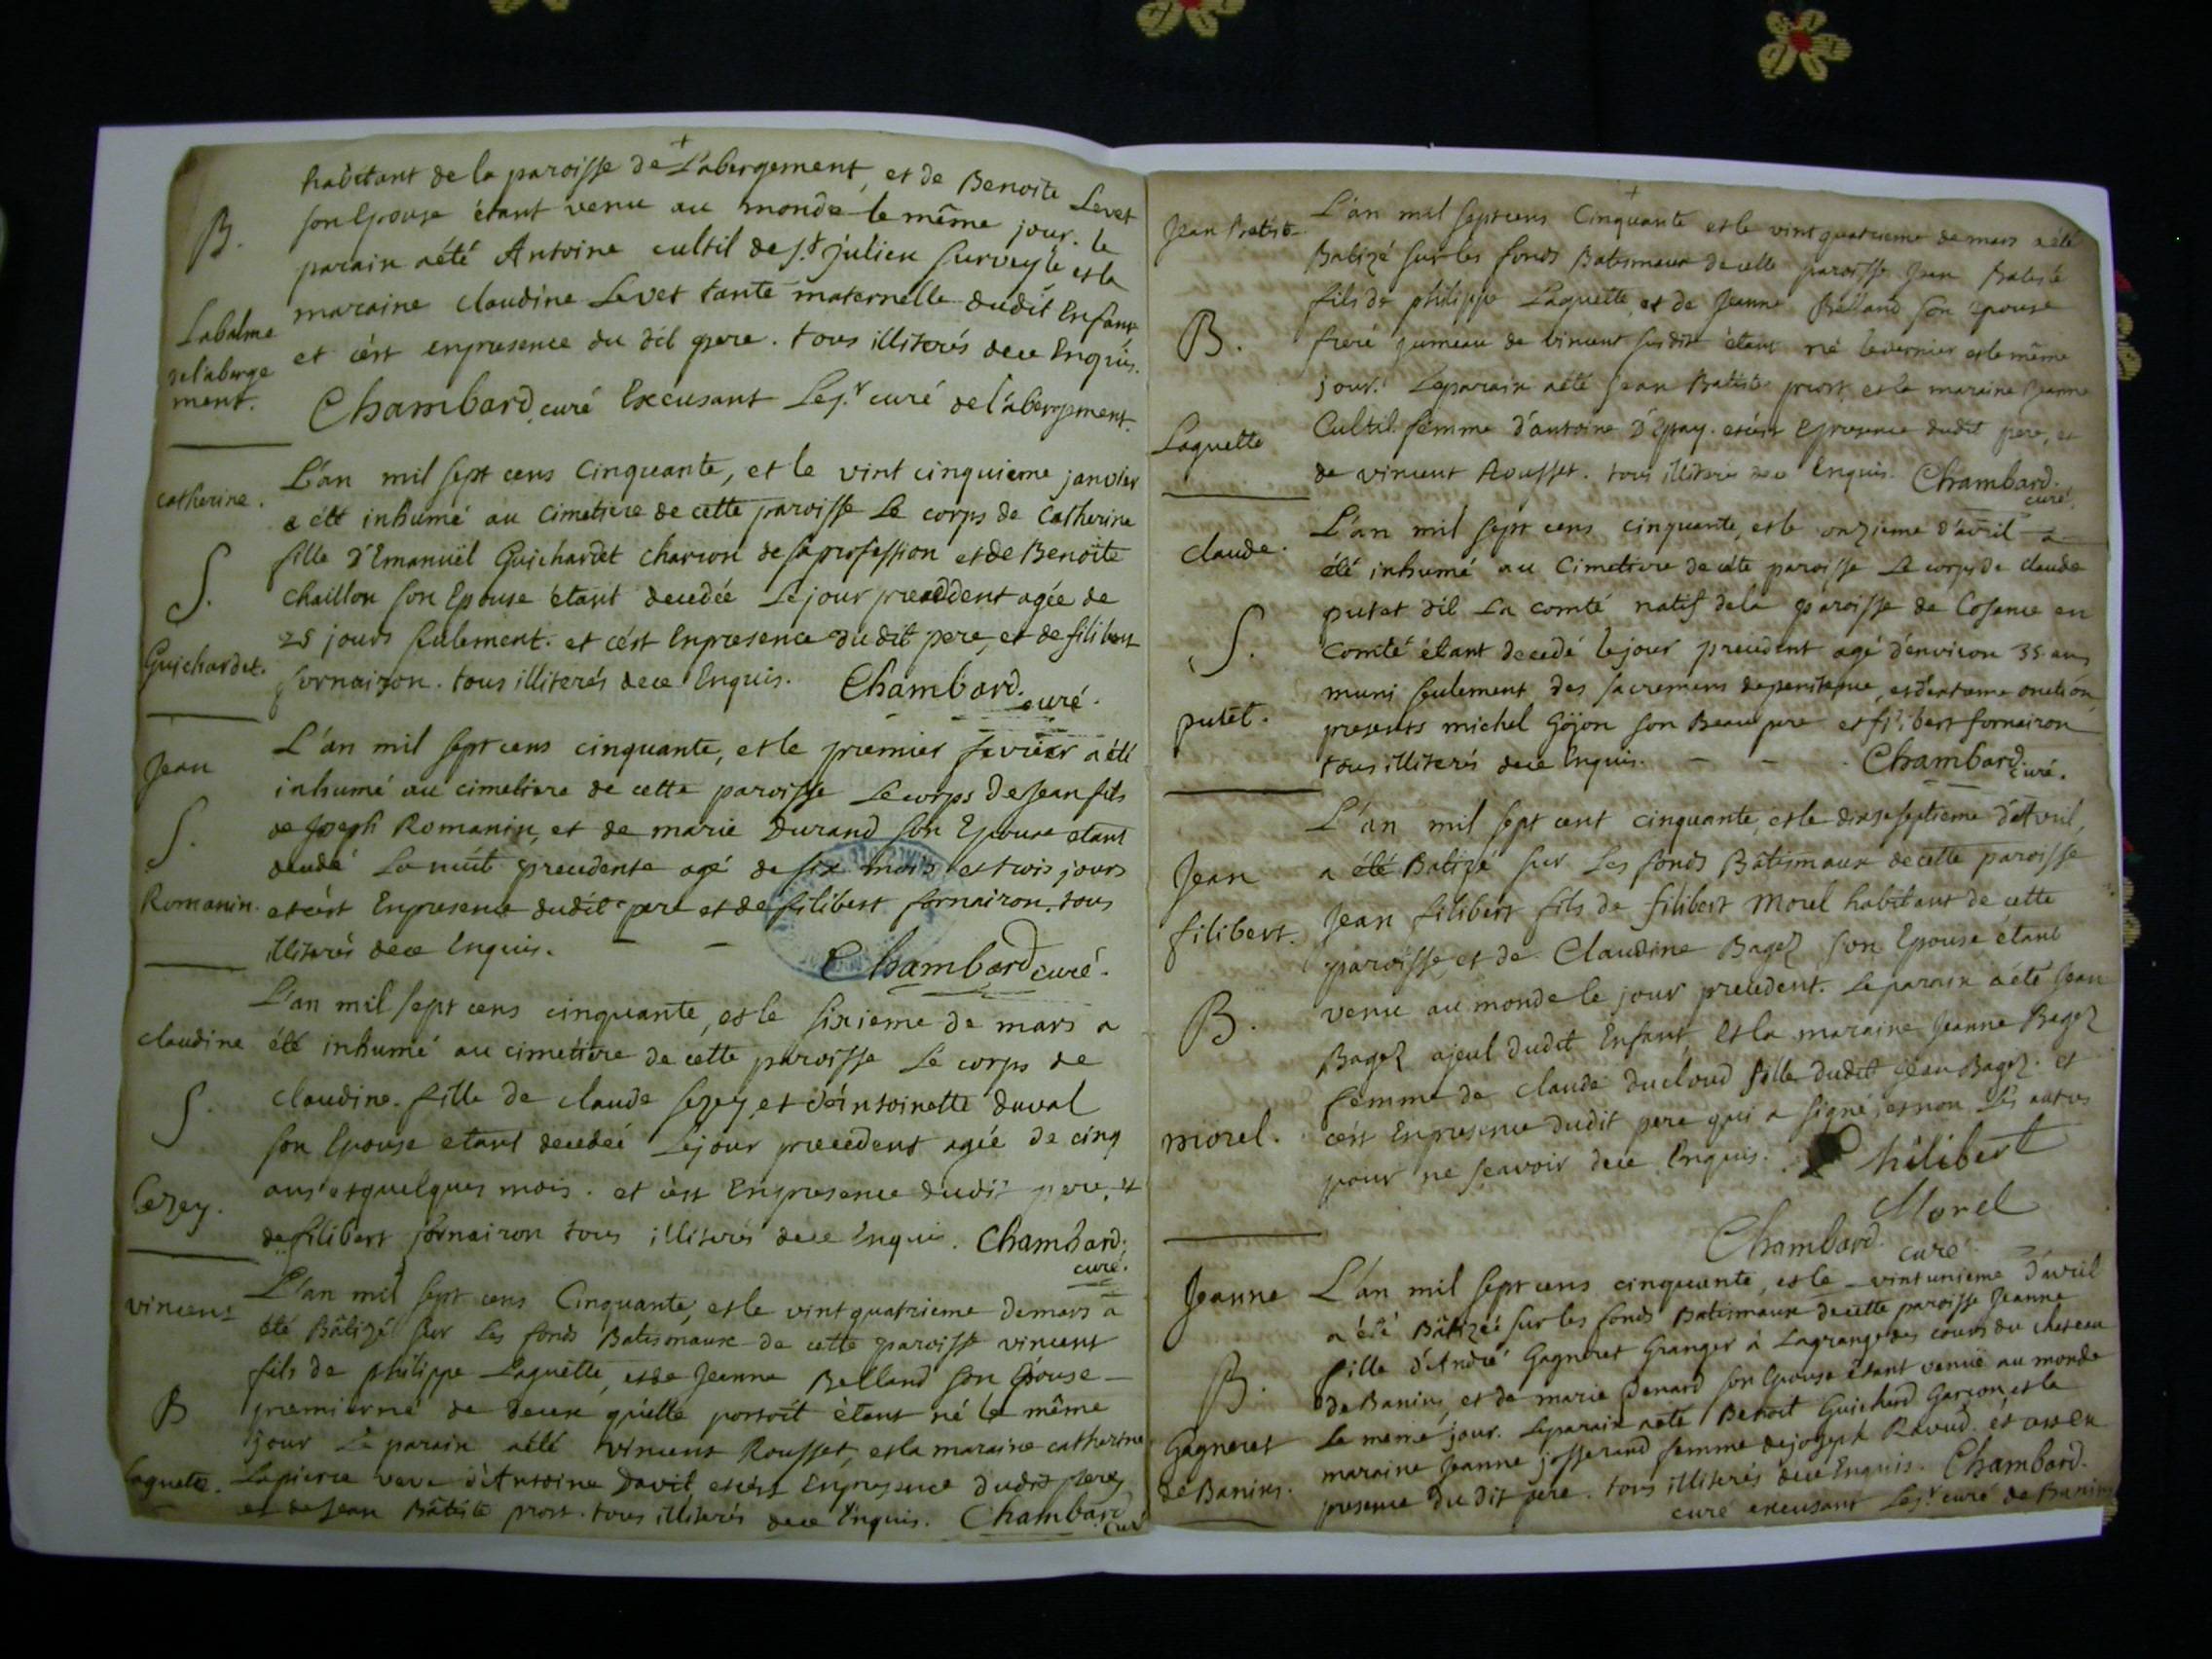 habitant de la paroisse de L'abergement, et de Benoite Levet
B. son Epouse étant venu au monde le même jour. le
parain aété Antoine cultil de st julien surveyle et la
maraine claudine Levet tante maternelle dudit Enfant
Labalme
et c'est enpresence du dit pere. tous illiterés dece Enquis.
de l'aberge
ment.
Chambard curé Excusant Le sr. curé de l'abergement.
catherine.
L'an mil sept cens Cinquante, et le vint cinquieme janvier
a été inhumé au Cimetiere de cette paroisse Le corps de Catherine
S.
fille d'Emanuël Guichardet charron de sa profession et de Benoïte
chaillon son Epouse étant decedée Le jour precedent agée de
25 jours seulement. et c'est Enpresence du dit pere, et de filibert
Guichardet.
fornairon. tous illiterés dece Enquis. Chambard. curé.
Jean
L'an mil sept cens cinquante, et le premier fevrier a été
inhumé au cimetiere de cette paroisse Le corps de Jean fils
S.
de Joseph Romanin, et de marie Durand son Epouse etant
decedé La nuit precedente agé de six mois et trois jours
Romanin.
et c'est Enpresence dudit pere et de filibert fornairon. tous
illiterés dece Enquis. - -
Chambard curé.
claudine
L'an mil sept cens cinquante, et le sixieme de mars a
été inhumé au cimetiere de cette paroisse Le corps de
S.
claudine. fille de claude sezey et d'éntoinette duval
son Epouse etant decedeé Le jour precedent agée de cinq
Cezey.
ans et quelques mois. et c'est Enpresence dudit pere, et
de filibert fornairon tous illiterés dece Enquis. Chambard.
curé.
vincent
L'an mil sept cens Cinquante, et le vint quatrieme demars a
été Bâtizé sur Les fonds Batismaux de cette paroisse vincent
fils de philippe Laguette, et de Jeanne Belland son Epouse
B
premier né de deux qu'elle portoit étant né le même
jour Le parain aété vincent Rousset, et la maraine catherine
Laguete.
Lapierre veve d'Antoine Davit, et c'est Enpresence dudit pere,
et de Jean Bâtiste prost. tous illiterés dece Enquis. Chambard
curé
Jean Batiste
L'an mil sept cens Cinquante et le vint quatrieme de mars a été
Batizé sur les fonds Batismaux de cette paroisse Jean Batiste
fils de philippe Laguette, et de Jeanne Belland son Epouse
B.
freré jumeau de vincent susdit étant né le dernier et le même
jour. Le parain aété Jean Batiste prost, et la maraine Jeanne
Laguette
Cultil femme d'antoine D'Epay. et c'est Epresence dudit pere, et
de vincent Rousset. tous illiterés dece Enquis. Chambard.
curé.
claude.
L'an mil sept cens cinquante, et le onzieme d'avril a
été inhumé au Cimetiere de cette paroisse Le corps de claude
putet dit La comté natif de la paroisse de Cosance en
S.
Comté étant decedé le jour precedent agé d'environ 35 ans
muni seulement des sacremens de penitence, et d'extreme onction
putet.
presents michel Gojon son Beau pere et filibert fornairon
tous illiterés dece Enquis. - - Chambard. curé.
L'an mil sept cent cinquante, et le dix septieme d'Avril,
Jean
a été Batizé sur Les fonds Bâtismaux de cette paroisse
filibert.
Jean filibert fils de filibert Morel habitant de cette
paroisse, et de Claudine Bagez son Epouse étant
B.
venu au monde le jour precedent. Le parain a été Jean
Bagez ajeul dudit Enfant et la maraine Jeanne Bagez
femme de claude ducloud fille dudit Jean Bagez. et
morel.
c'est Enpresence dudit pere qui a signé, et non les autres
pour ne sçavoir dece Enquis. Philibert
Morel
Chambard. curé.
Jeanne
L'an mil sept cens cinquante, et le vint unieme d'avril
a été Bâtizeé sur les fonds Batismaux de cette paroisse Jeanne
fille d'André Gagneret Granger à Lagrange des cours du chateau
B.
de Banins, et de marie Penard son Epouse étant venuë au monde
Le meme jour. Le parain aété Benoit Guichard Garçon, et la
Gagneret
maraine Jeanne josserand femme de joseph Ravud. et c'est en
de Banins.
presence du dit pere. tous illiterés dece Enquis. Chambard.
curé excusant Le sr. curé de Banins